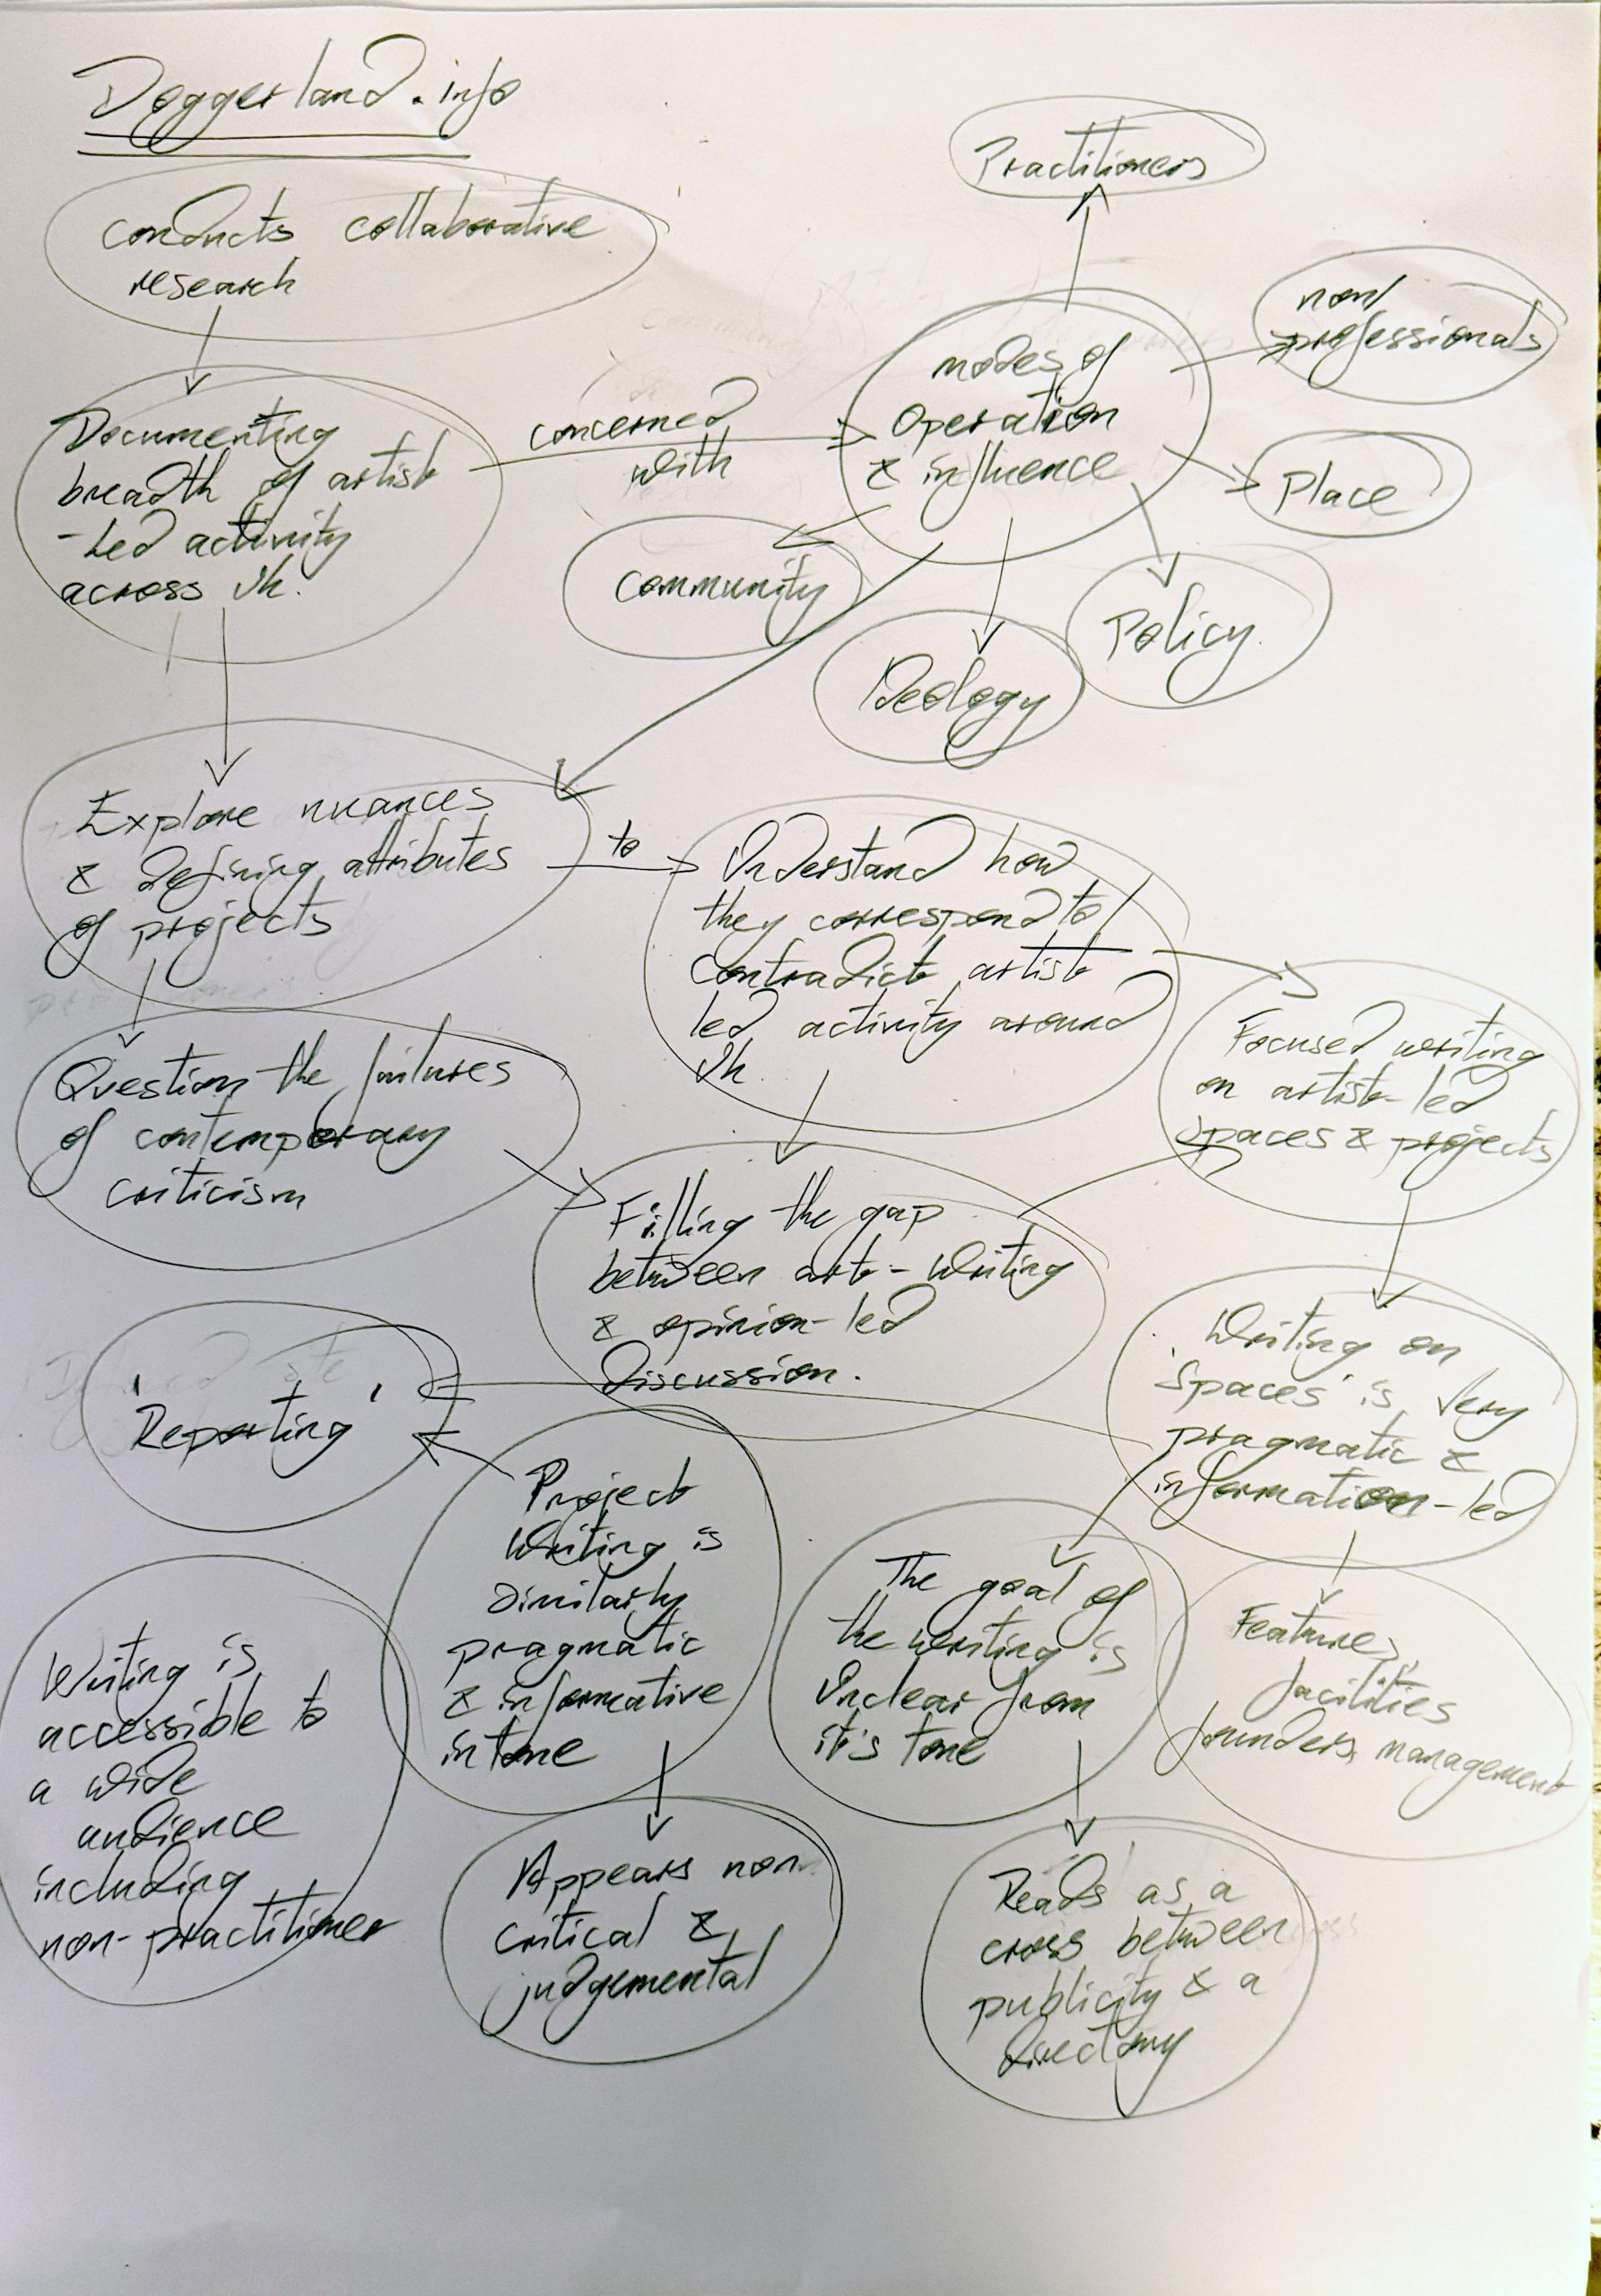 Doggerland.info
conducts collaborative
research
Documenting
breadth of artist
-led activity
across Uk.
concerned
with
modes of
operation
& influence
Practitioners
non/
professionals
Place
Policy
Ideology
community
Explore nuances
& defining attributes
of projects
to
Understand how
they correspond to/
contradict artist
led activity around
Uk.
Question the failures
of contemporary
criticism
Filling the gap
between art-writing
& opinion-led
discussion.
Focused writing
on artist-led
spaces & projects
Writing on
'Spaces' is very
pragmatic &
information-led
'Reporting'
Project
writing is
similarly
pragmatic
& informative
in tone
The goal of
the writing is
Unclear from
it's tone
Features,
facilities
founders, management
Writing is
accessible to
a wide
audience
including
non-practitioner
Appears non
critical &
judgemental
Reads as a
cross between
publicity & a
directory